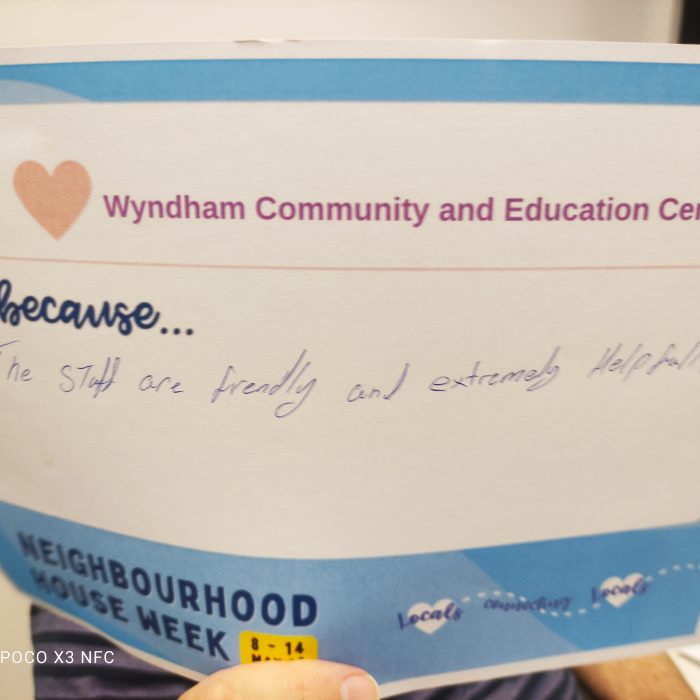 Wyndham Community and Education Cen
because...
The Staff are frendly and extremely Helpfull
NEIGHBOURHOOD
HOUSE WEEK
8 - 14
Locals connecting Locals
POCO X3 NFC